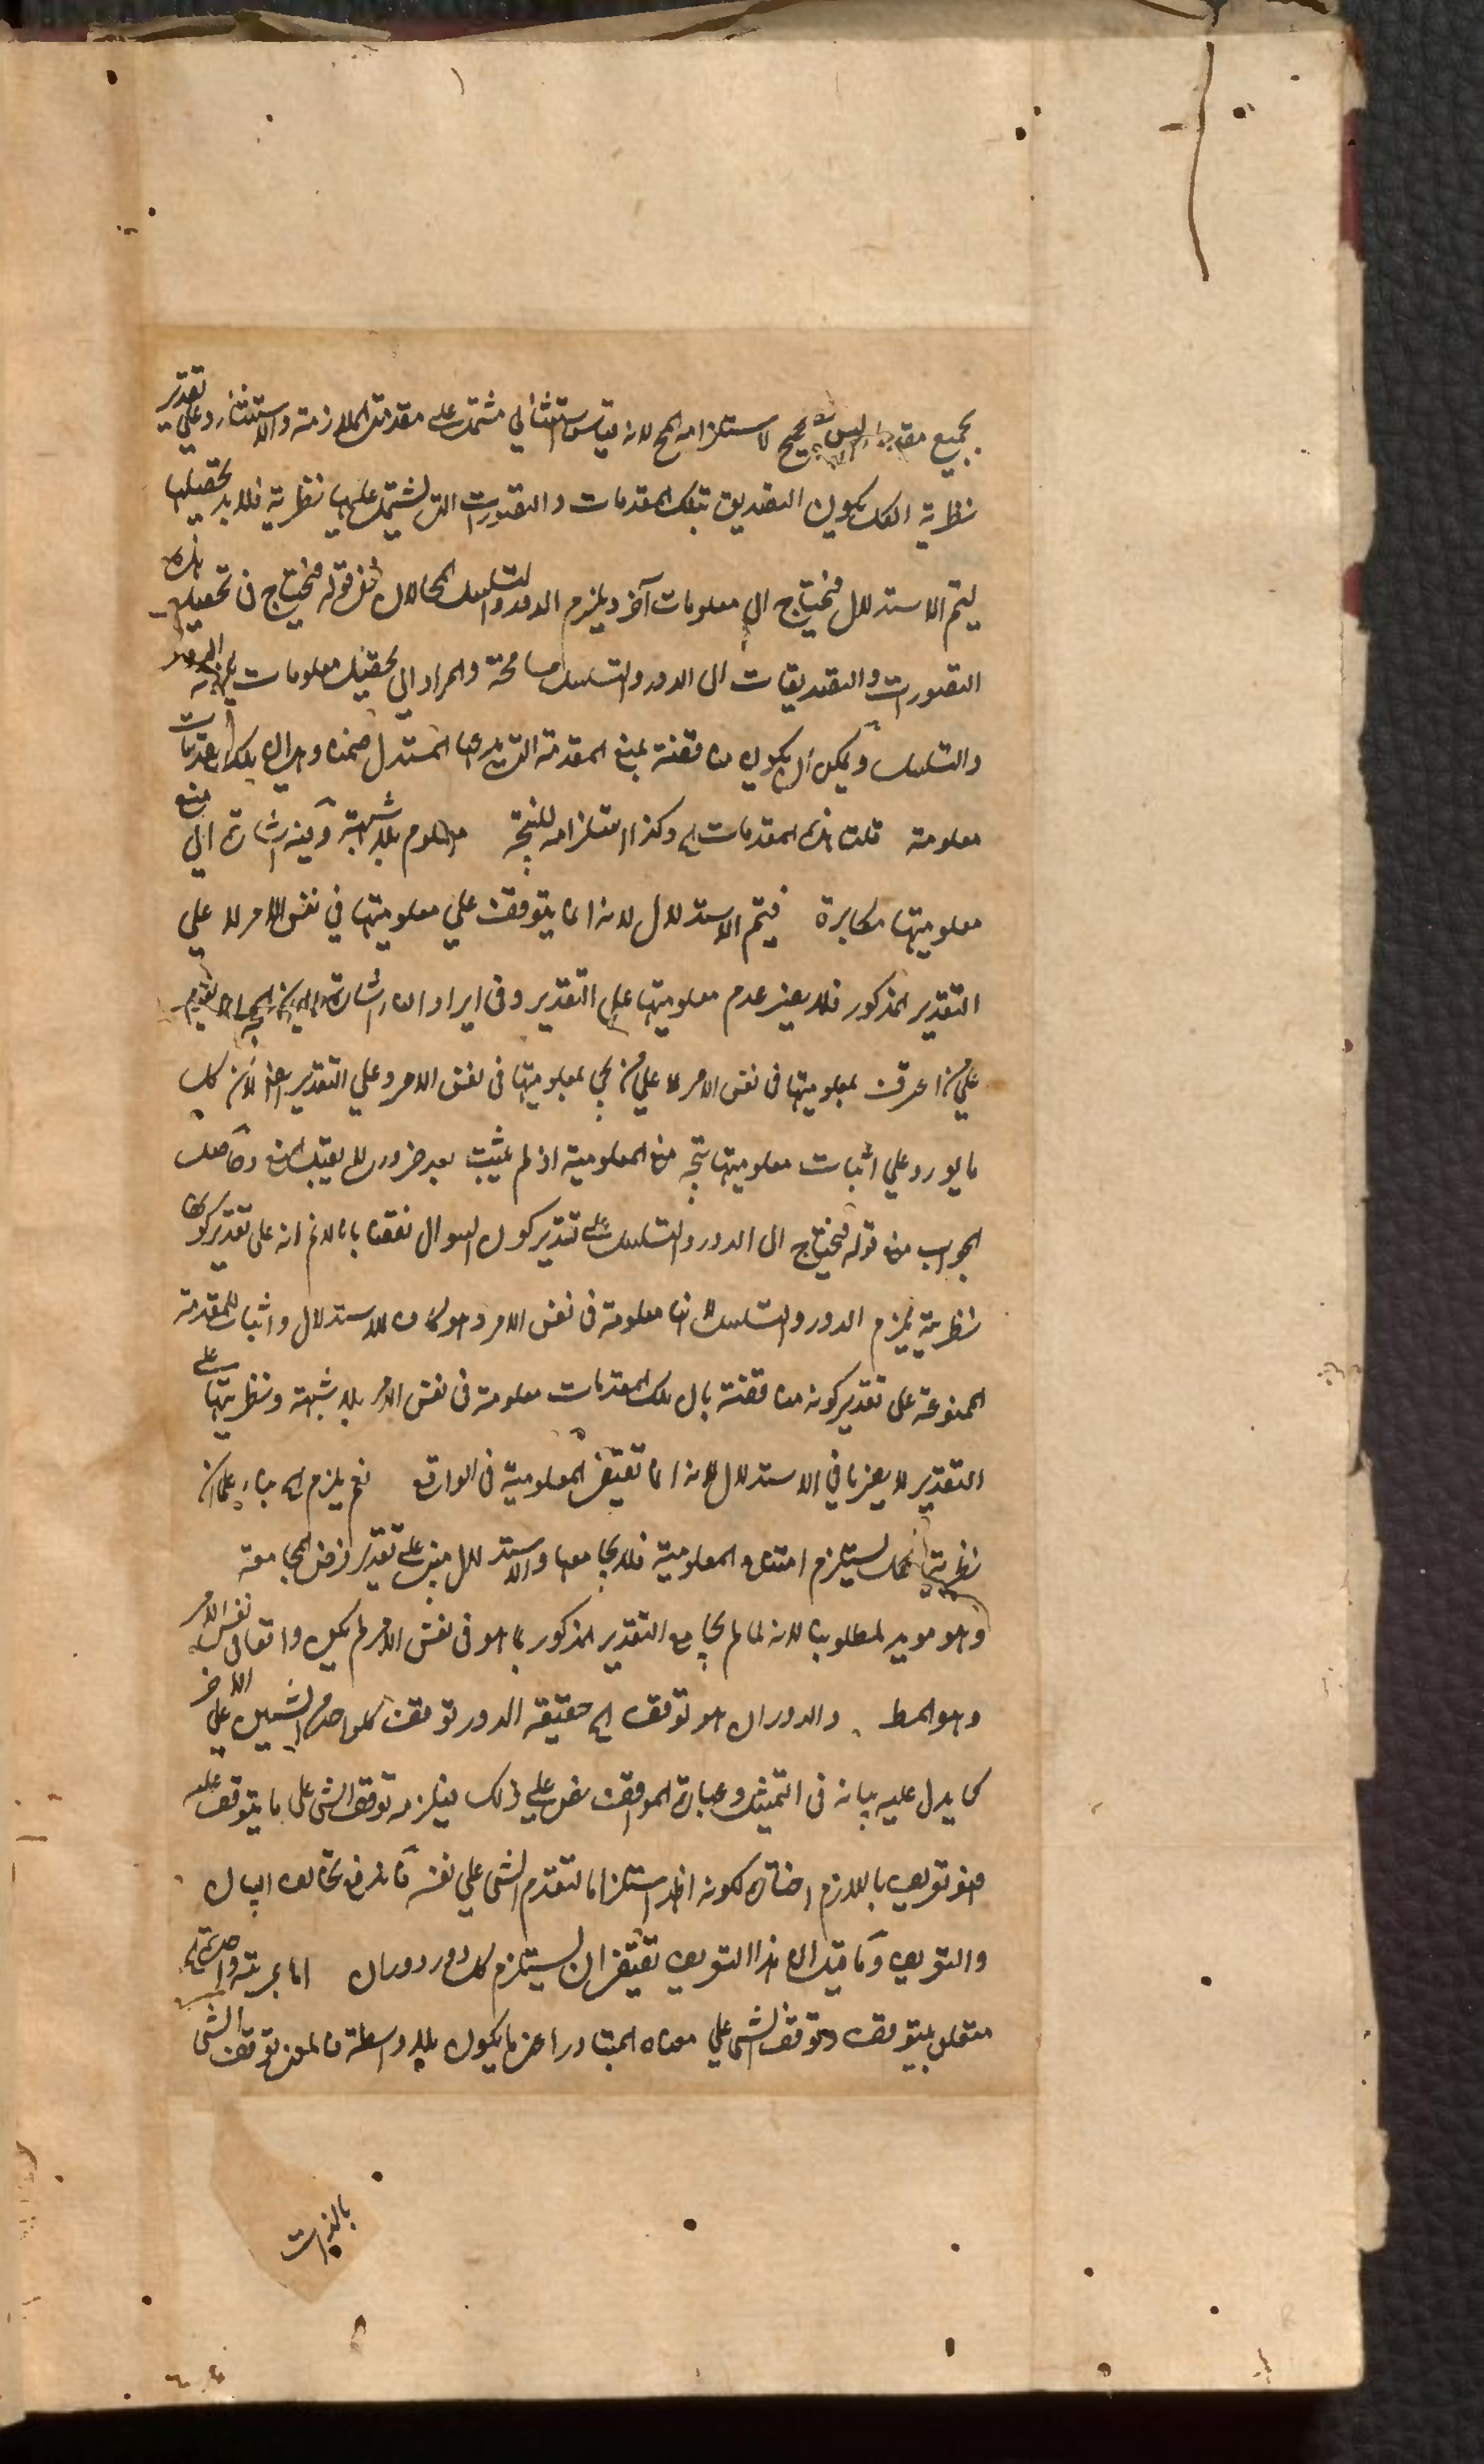 بجميع مقدماته ليس بصحيح لاستلزامه المح لانه قياس استثنائي مشتمل على مقدمتى الملازمة والاستثناء وعلى تقدير
نظرية الكل يكون التصديق بتلك المقدمات والتصورات التى يشتمل عليها نظرية فلابد تحصيلها
ليتم الاستدلال فيحتاج الى معلومات آخر ويلزم الدور والتسلسل المحالان ففى قوله فيحتاج فى تحصيل هذه
التصورات والتصديقات الى الدور والتسلسل مسامحة والمراد الى تحصيل معلومات يلزمه الدور
والتسلسل ويمكن ان يكون مناقضة بمنع المقدمة التى يدعيها المستدل ضمنا وهى ان تلك المقدمات
معلومة قلت هذه المقدمات اى وكذا استلزامه للنتيجة معلوم بلا شبهة وفيه اشارة الى منع
معلوميتها مكابرة فيتم الاستدلال لانه انما يتوقف على معلوميتها في نفس الامر لا على
التقدير المذكور فلا يضر عدم معلوميتها على التقدير وفى ايراد
على من اعترف بمعلوميتها فى نفس الامر لا على من يمنع معلوميتها فى نفس الامر وعلى التقدير ايضا لان كل
ما يورد على اثبات معلوميتها يتجه منع المعلومية اذ لم يثبت بعد ضرورى لا يقبل المنع وحاصل
الجواب منع قوله فيحتاج الى الدور والتسلسل على تقدير كون السوال نقضا بانا لانم انه على تقدير كونها
نظرية يلزم الدور والتسلسل لانها معلومة فى نفس الامر وهو كاف للاستدلال واثبات المقدمة
الممنوعة على تقدير كونه مناقضة بان تلك المقدمات معلومة فى نفس الامر بلا شبهة ونظريتها على
التقدير لا يضرنا في الاستدلال لانه انما يقتضى المعلومية فى الواقع نعم يلزم اى بناء على ان
نظرية الكل يستلزم امتناع المعلومية فلا يجامعها والاستدلال مبنى على تقدير فرض المجامعة
وهو مويد لمطلوبنا لانه لما لم يجامع التقدير المذكور بما هو فى نفس الامر لم يكن واقعا فى نفس الامر
وهو المط والدوران هو توقف اى حقيقه الدور توقف كل واحد من الشيئين على الاخر
كما يدل عليه بيانه فى التمثيل وعبارة المواقف نص على ذلك فيلزمه توقف الشى على ما يتوقف عليه
فهو تعريف باللازم اختاره لكونه اظهر استلزاما لتقدم الشى على نفسه فاندفع تخالف البيان
والتعريف وما قيل ان هذا التعريف يقتضى ان يستلزم كل دور دوران اما بمرتبة واحدة
متعلق بيتوقف وتوقف الشى على معناه المتبادر اعنى ما يكون بلا واسطة فالمعنى توقف الشى
بالذات